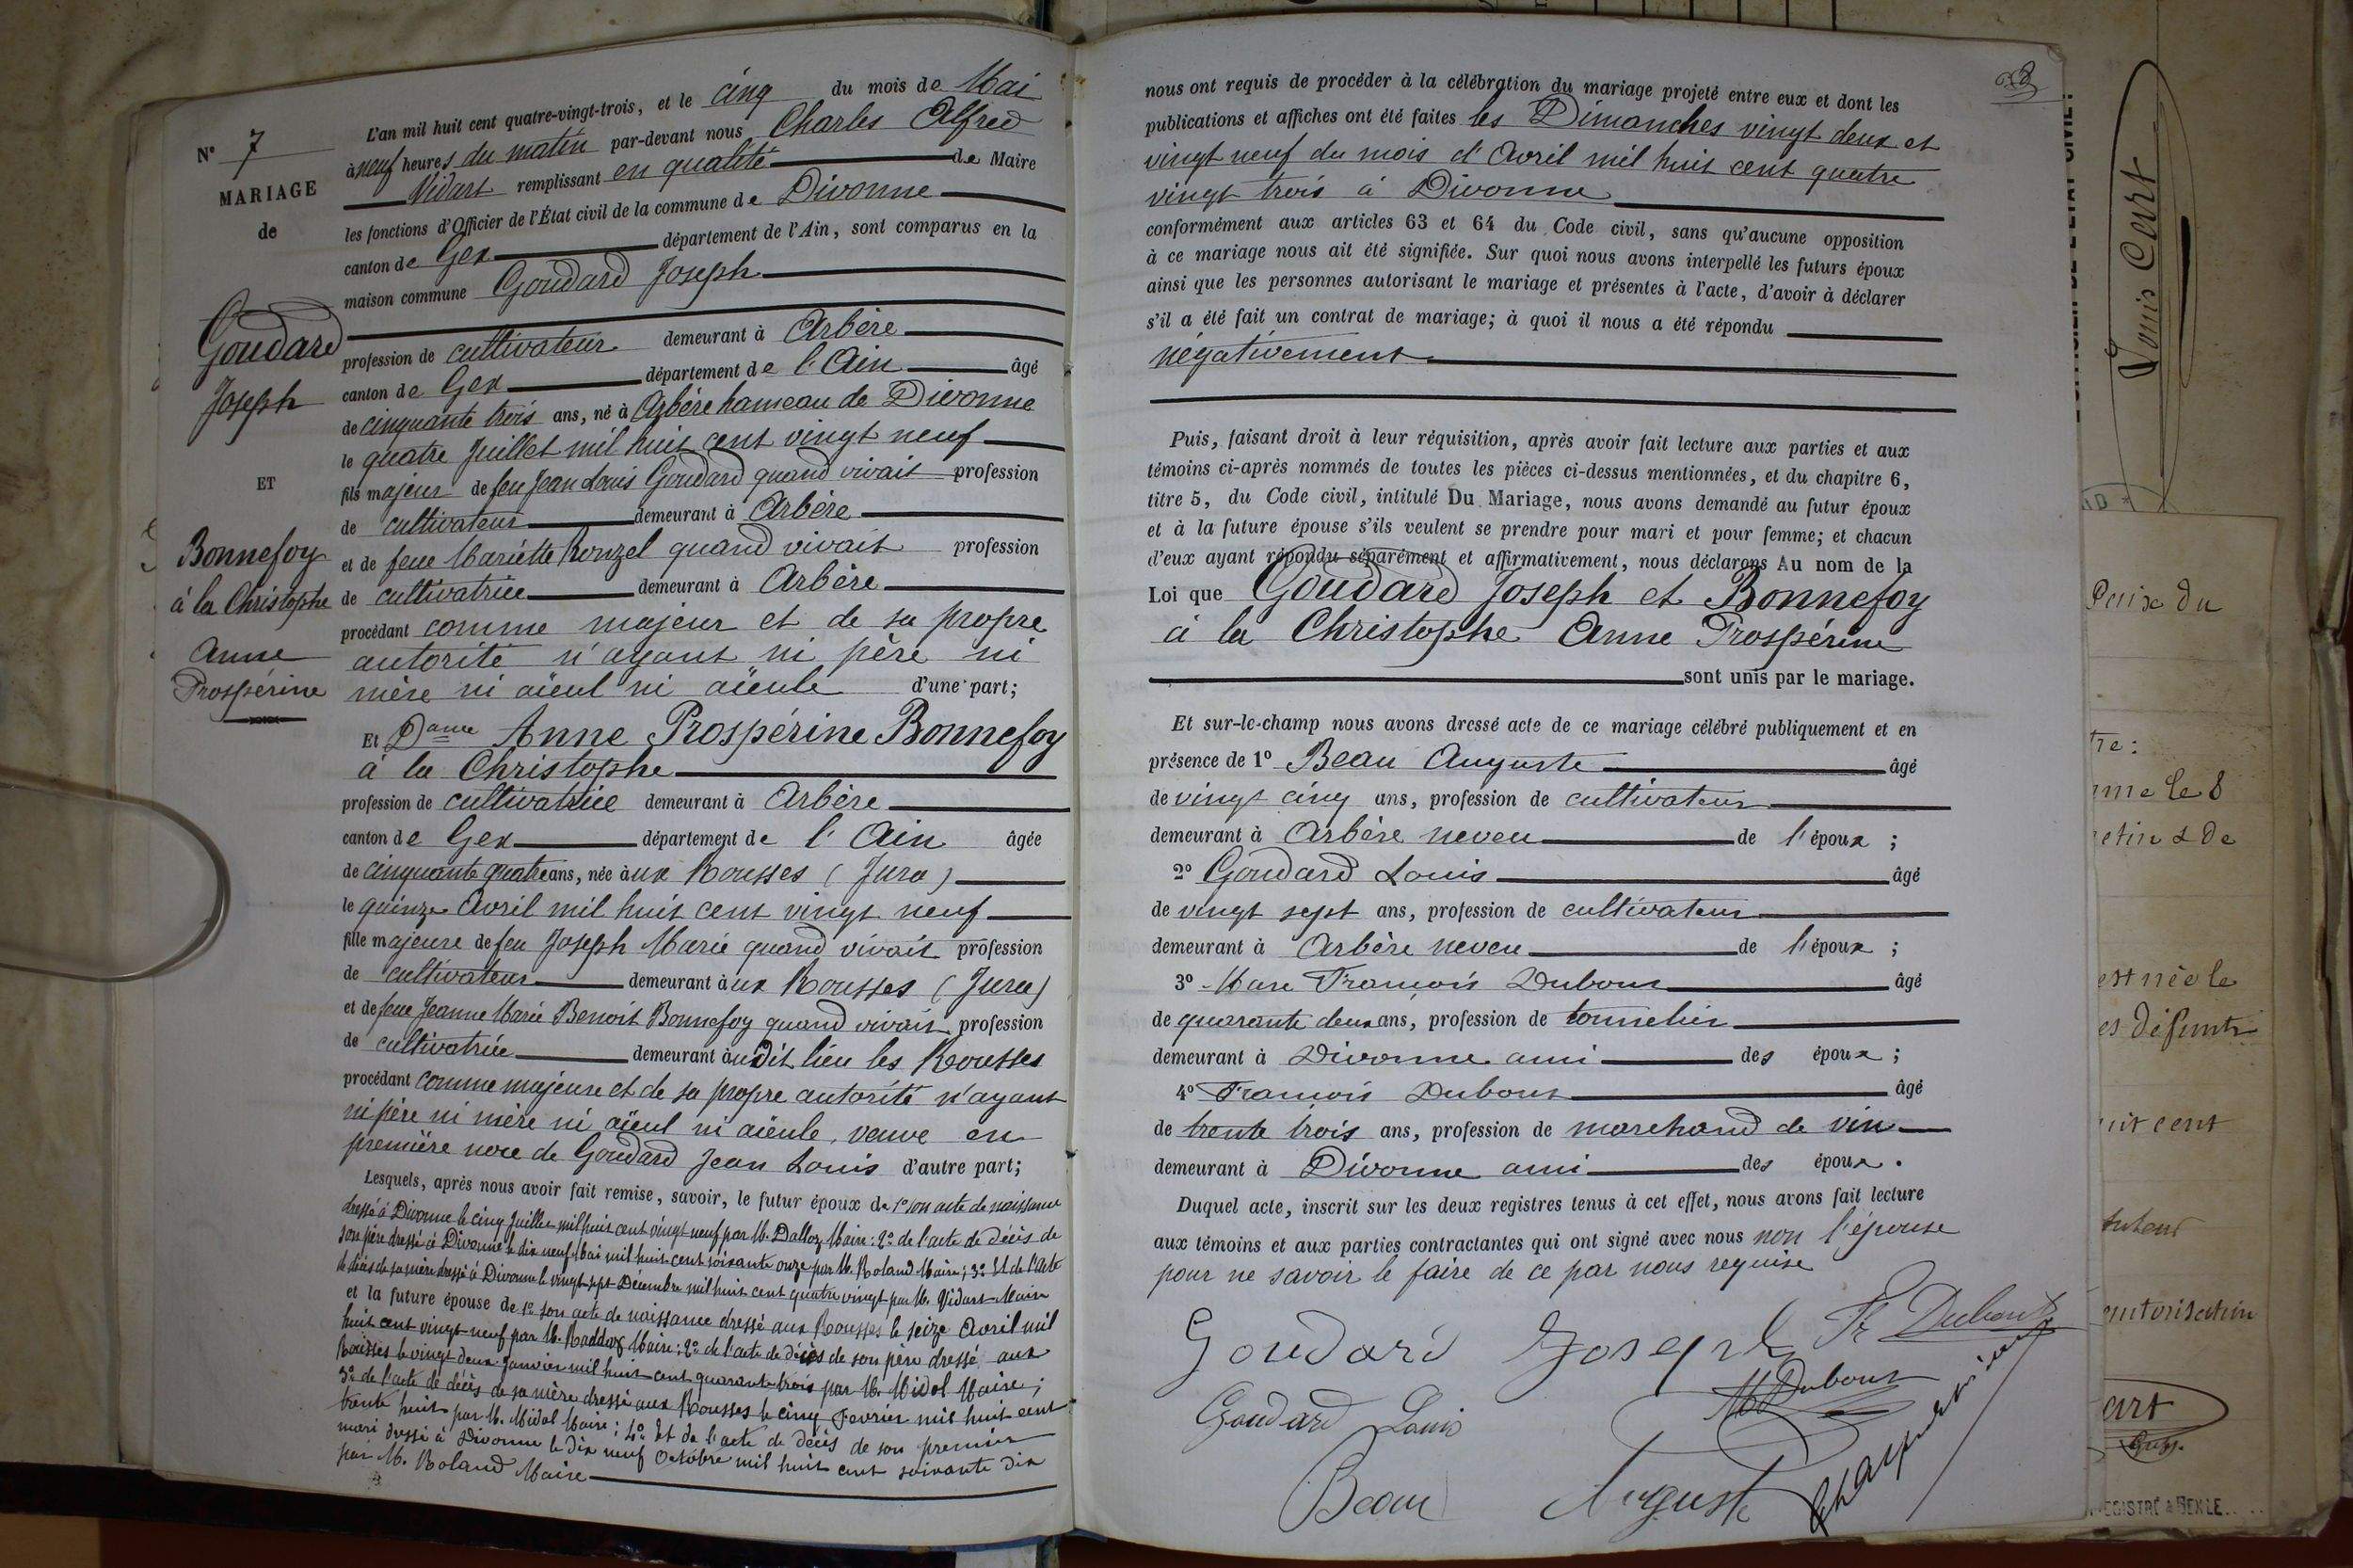 N° 7
MARIAGE
de
Goudard
Joseph
ET
Bonnefoy
à la Christophe
Anne
Prospérine
L'an mil huit cent quatre-vingt-trois, et le cinq du mois de Mai
à neuf heures du matin par-devant nous Charles Alfred
Vidart remplissant en qualité de Maire
les fonctions d'Officier de l'État civil de la commune de Divonne
canton de Gex département de l'Ain, sont comparus en la
maison commune Goudard Joseph
profession de cultivateur demeurant à Arbère
canton de Gex département de l'Ain âgé
de cinquante trois ans, né à Arbère hameau de Divonne
le quatre Juillet mil huit cent vingt neuf
fils majeur de feu Jean Louis Goudard quand vivait profession
de cultivateur demeurant à Arbère
et de feue Mariette Ronzel quand vivait profession
de cultivatrice demeurant à Arbère
procédant comme majeur et de sa propre
autorité n'ayant ni père ni
mère ni aïeul ni aïeule d'une part;
Et Dame Anne Prospérine Bonnefoy
à la Christophe
profession de cultivatrice demeurant à Arbère
canton de Gex département de l'Ain âgée
de cinquante quatre ans, née àux Rousses (Jura)
le quinze Avril mil huit cent vingt neuf
fille majeure de feu Joseph Marie quand vivait profession
de cultivateur demeurant àux Rousses (Jura)
et de feue Jeanne Marie Benoit Bonnefoy quand vivait profession
de cultivatrice demeurant àudit lieu les Rousses
procédant comme majeure et de sa propre autorité n'ayant
ni père ni mère ni aïeul ni aïeule, veuve en
première noce de Goudard Jean Louis d'autre part;
Lesquels, après nous avoir fait remise, savoir, le futur époux de 1° son acte de naissance
dressé à Divonne le cinq Juillet mil huit cent vingt neuf par M. Dalloz Maire: 2° de l'acte de décès de
son père dressé à Divonne le dix neuf Mai mil huit cent soixante onze par M. Roland Maire; 3° Et de l'acte
de décès de sa mère dressé à Divonne le vingt sept Décembre mil huit cent quatre vingt par M. Vidart Maire
et la future épouse de 1° son acte de naissance dressé aux Rousses le seize Avril mil
huit cent vingt neuf par M. Maire: 2° de l'acte de décès de son père dressé aux
Rousses le vingt deux Janvier mil huit cent quarante trois par M. Midol Maire;
3° de l'acte de décès de sa mère dressé aux Rousses le cinq Février mil huit cent
trente huit par M. Midol Maire: 4° Et de l'acte de décès de son premier
mari dressé à Divonne le dix neuf Octobre mil huit cent soixante dix
par M. Roland Maire
nous ont requis de procéder à la célébration du mariage projeté entre eux et dont les
publications et affiches ont été faites les Dimanches vingt deux et
vingt neuf du mois d'Avril mil huit cent quatre
vingt trois à Divonne
conformément aux articles 63 et 64 du Code civil, sans qu'aucune opposition
à ce mariage nous ait été signifiée. Sur quoi nous avons interpellé les futurs époux
ainsi que les personnes autorisant le mariage et présentes à l'acte, d'avoir à déclarer
s'il a été fait un contrat de mariage; à quoi il nous a été répondu
négativement
Puis, faisant droit à leur réquisition, après avoir fait lecture aux parties et aux
témoins ci-après nommés de toutes les pièces ci-dessus mentionnées, et du chapitre 6,
titre 5, du Code civil, intitulé Du Mariage, nous avons demandé au futur époux
et à la future épouse s'ils veulent se prendre pour mari et pour femme; et chacun
d'eux ayant répondu séparément et affirmativement, nous déclarons Au nom de la
Loi que Goudard Joseph et Bonnefoy
à la Christophe Anne Prospérine
sont unis par le mariage.
Et sur-le-champ nous avons dressé acte de ce mariage célébré publiquement et en
présence de 1° Beau Auguste âgé
de vingt cinq ans, profession de cultivateur
demeurant à Arbère neveu de l'époux;
2° Goudard Louis âgé
de vingt sept ans, profession de cultivateur
demeurant à Arbère neveu de l'époux;
3° Marc François Dubout âgé
de quarante deux ans, profession de tonnelier
demeurant à Divonne ami des époux;
4° François Dubout âgé
de trente trois ans, profession de marchand de vin
demeurant à Divonne ami des époux.
Duquel acte, inscrit sur les deux registres tenus à cet effet, nous avons fait lecture
aux témoins et aux parties contractantes qui ont signé avec nous non l'épouse
pour ne savoir le faire de ce par nous requise
Goudard Joseph Fr Dubout
Goudard Louis MDubout
Beau Auguste
Louis Cart
Paix du
me le 8
est née le
es défunts
uit cent
autorisation
art